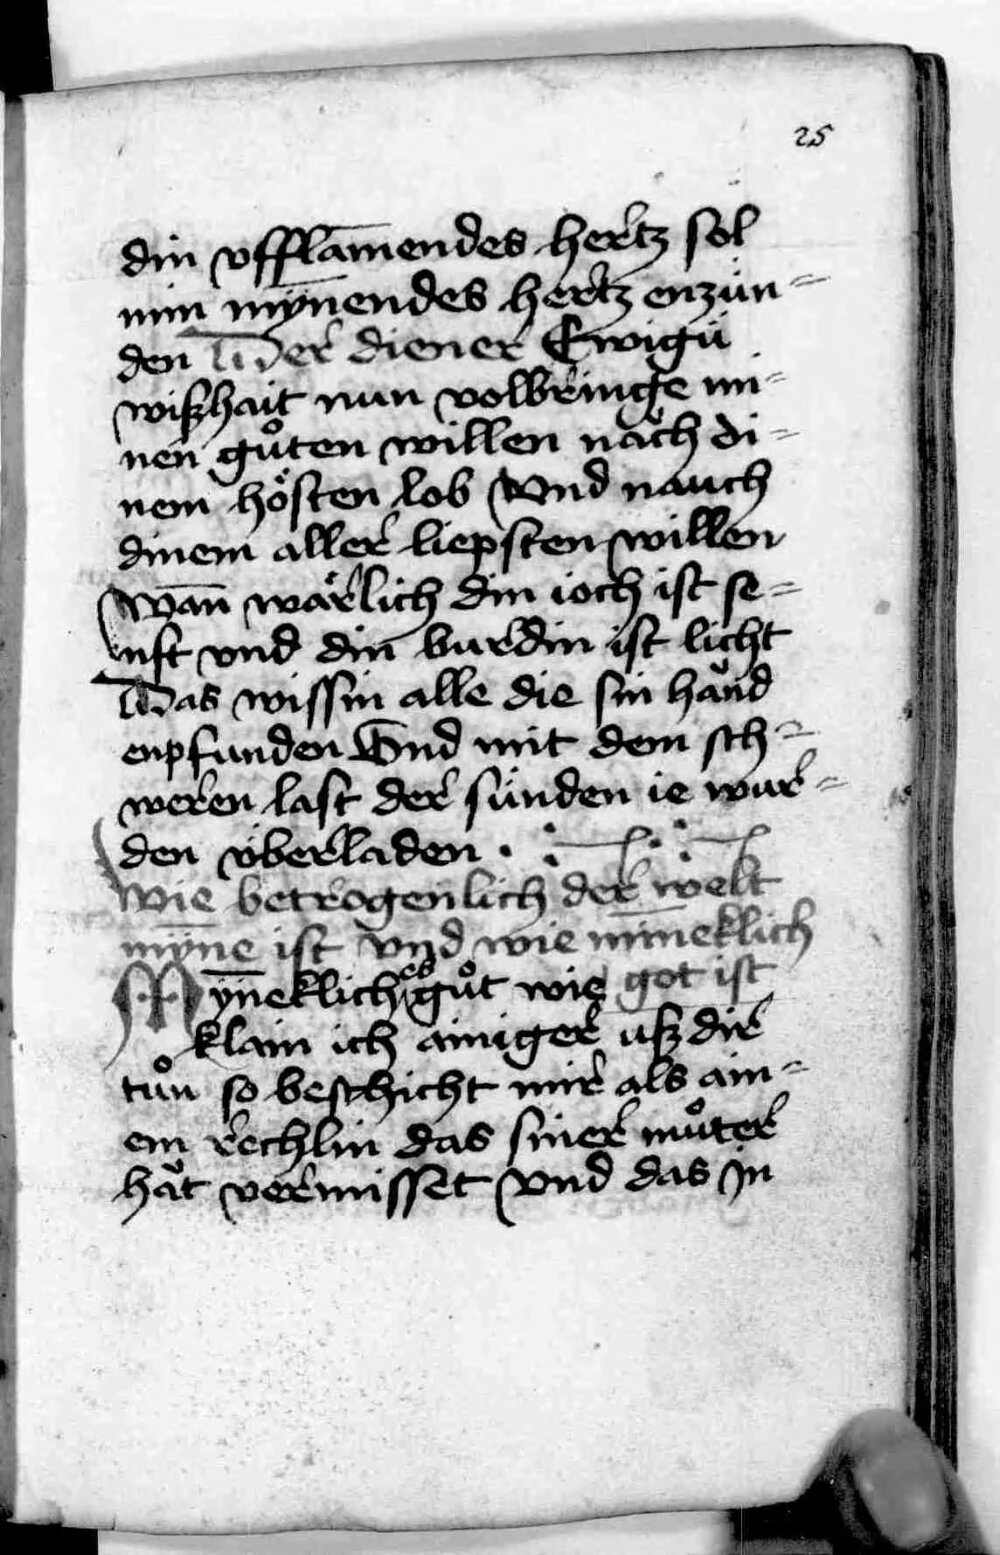 25
din vfflam̄endes hertz sol
min myn̄endes hertz enzün=
den Der diener Ewigü
wißhait nun volbringe mi=
nen gůten willen nǎch di=
nem hösten lob Vnd nauch
dinem aller liepsten willen
Wan̄ wärlich din ioch ist se=
nfft vnd din burdin ist licht
Das wissin alle die sin hǎnd
enpfunden Vnd mit dem sch=
weren last der sünden ie wur=
den v̈berladen .
Wie betrogenlich der welt
myn̄e ist vnd wie min̄eklich
Myn̄eklich es gůt wie got ist
klain ich ainiger uß dir
tůn so beschicht mir als ain=
em rechlin das siner můter
hǎt vermisset Vnd das in